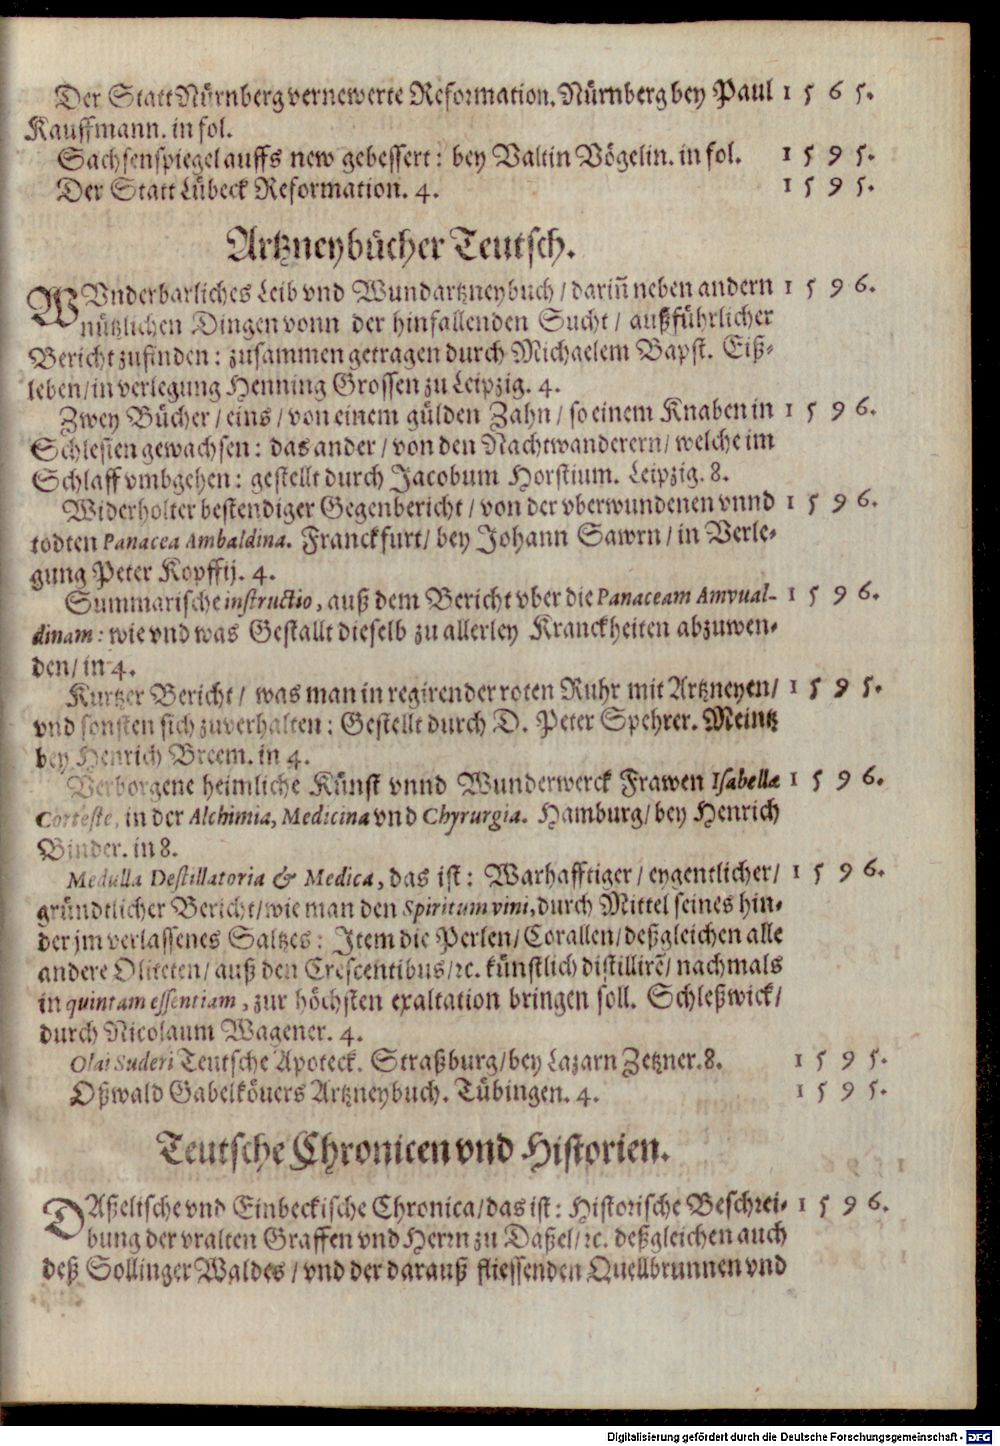 Der Statt Nürnberg vernewerte Reformation. Nürnberg bey Paul 1 5 6 5.
Kauffmann. in fol.
Sachsenspiegel auffs new gebessert: bey Valtin Vögelin. in fol. 1 5 9 5.
Der Statt Lübeck Reformation. 4. 1 5 9 5.
Artzneybücher Teutsch.
WVnderbarliches Leib vnd Wundartzneybuch / dariñ neben andern 1 5 9 6.
nützlichen Dingen vonn der hinfallenden Sucht / außführlicher
Bericht zufinden: zusammen getragen durch Michaelem Bapst. Eiß-
leben / in verlegung Henning Grossen zu Leipzig. 4.
Zwey Bücher / eins / von einem gülden Zahn / so einem Knaben in 1 5 9 6.
Schlesien gewachsen: das ander / von den Nachtwanderern / welche im
Schlaff vmbgehen: gestellt durch Jacobum Horstium. Leipzig. 8.
Widerholter bestendiger Gegenbericht / von der vberwundenen vnnd 1 5 9 6.
todten Panacea Ambaldina. Franckfurt / bey Johann Sawrn / in Verle-
gung Peter Kopffij. 4.
Summarische instructio, auß dem Bericht vber die Panaceam Amvual- 1 5 9 6.
dinam: wie vnd was Gestallt dieselb zu allerley Kranckheiten abzuwen-
den / in 4.
Kurtzer Bericht / was man in regirender roten Ruhr mit Artzneyen / 1 5 9 5.
vnd sonsten sich zuverhalten: Gestellt durch D. Peter Spehrer. Meintz
bey Henrich Breem. in 4.
Verborgene heimliche Künst vnnd Wunderwerck Frawen Isabellæ 1 5 9 6.
Corteste, in der Alchimia, Medicina vnd Chyrurgia. Hamburg / bey Henrich
Binder. in 8.
Medulla Destillatoria & Medica, das ist: Warhafftiger / eygentlicher / 1 5 9 6.
gründtlicher Bericht / wie man den Spiritum vini, durch Mittel seines hin-
der jm verlassenes Saltzes: Item die Perlen / Corallen / deßgleichen alle
andere Oliteten / auß den Crescentibus / ꝛc. künstlich distillirẽ / nachmals
in quintam essentiam, zur höchsten exaltation bringen soll. Schleßwick /
durch Nicolaum Wagener. 4.
Olai Suderi Teutsche Apoteck. Straßburg / bey Lazarn Zetzner. 8. 1 5 9 5.
Oßwald Gabelköuers Artzneybuch. Tübingen. 4. 1 5 9 5.
Teutsche Chronicen vnd Historien.
DAßelische vnd Einbeckische Chronica / das ist: Historische Beschrei- 1 5 9 6.
bung der vralten Graffen vnd Herrn zu Daßel / ꝛc. deßgleichen auch
deß Sollinger Waldes / vnd der darauß fliessenden Quellbrunnen vnd
Digitalisierung gefördert durch die Deutsche Forschungsgemeinschaft - DFG